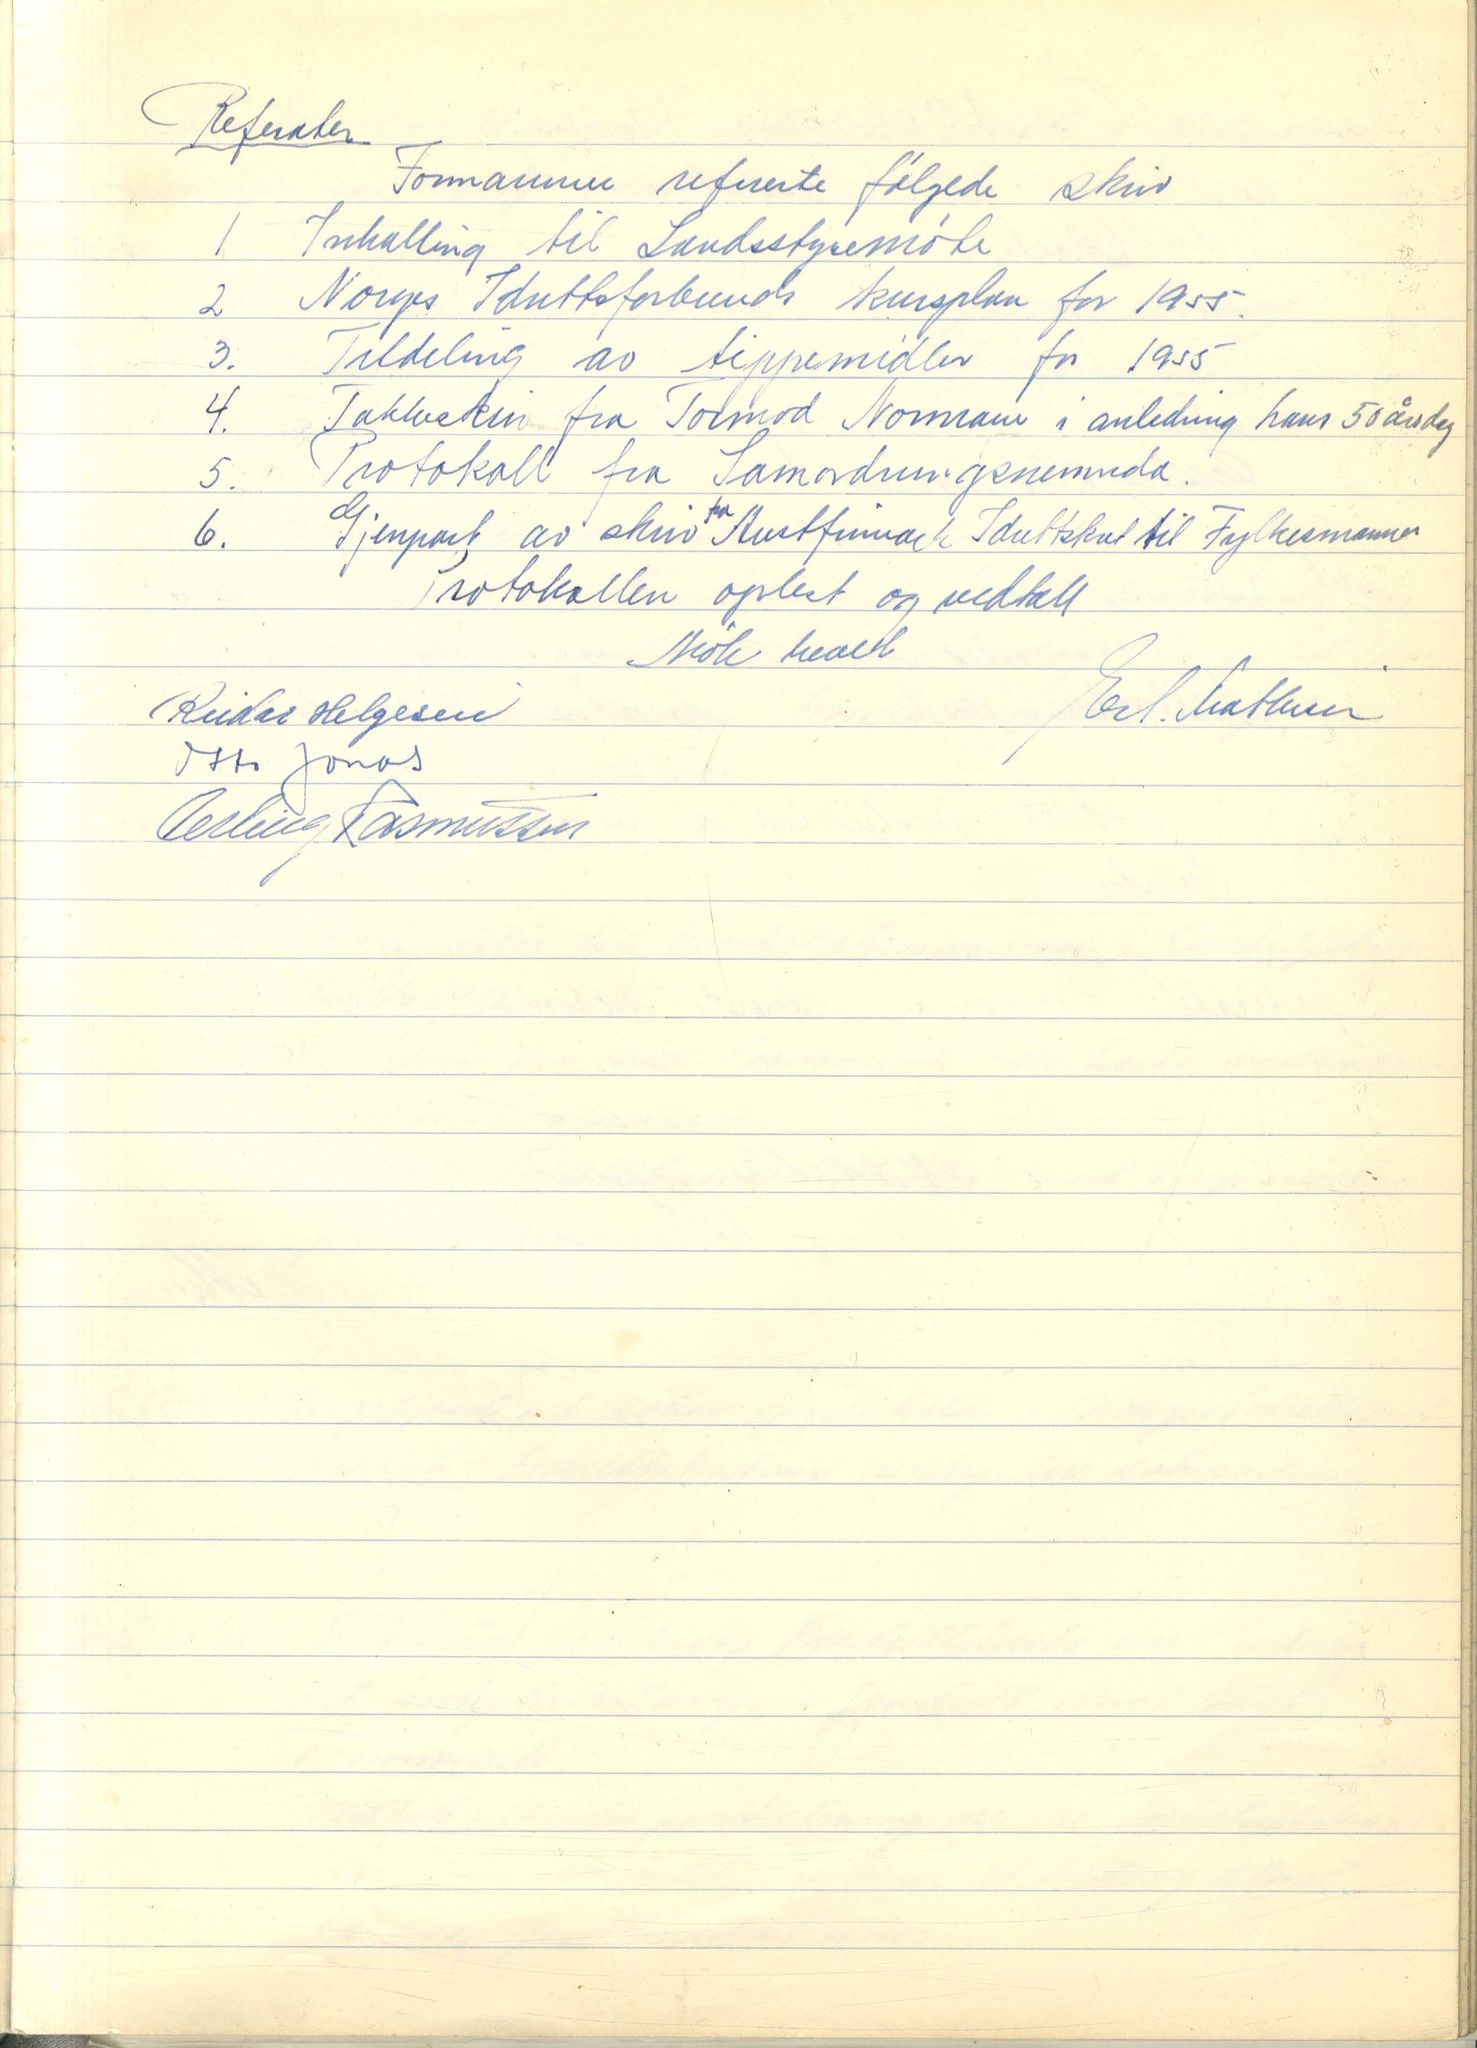 Referater
Formannen refererte følgede skriv
1 Inkalling til Landsstyremöte
2 Norges Idrettsforbunds kursplan for 1955.
3. Tildeling av tippemidler for 1955
4. Takkeskriv fra Tormod Normann i anledning hans 50 årsdag
5. Protokoll fra Samordningsnemnda.
6. Gjenpart av skriv fra Austfinnmark Idrettskret til Fylkesmannen
Protokollen oplest og vedtatt
Möte hevet
Reidar Helgesen
Erl. Mathisen
Otto Jonas
Erling Rasmussen